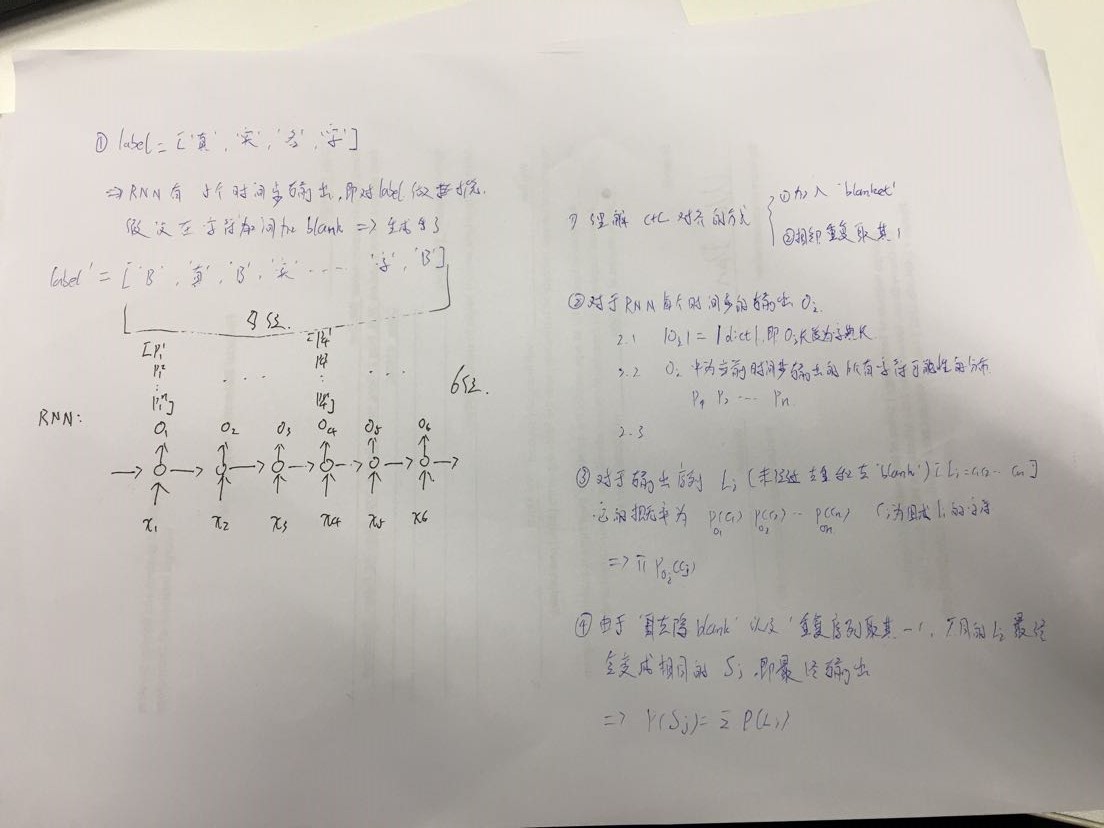 ① label = ['真', '实', '名', '字']
⇒ RNN 有 个时间步输出, 即对label做
假设在字符加 blank =>
label' = ['B', '真', 'B', '实' ... '字', 'B']
[P₁¹
P₁²
⋮
P₁ⁿ]
. . .
. . .
6
RNN:
O₁ O₂ O₃ O₄ O₅ O₆
x₁ x₂ x₃ x₄ x₅ x₆
理解 CTC 对齐的方式
①加入 'blanket'
②相邻重复取其1
②对于RNN每个时间步的输出 Oᵢ
2.1 |Oᵢ| = |dict|, 即 Oᵢ长度为字典长
2.2 Oᵢ 中为当前时间步输出的所有字符可能性的分布
P₁ P₂ ... Pₙ
2.3
③对于输出序列 Lᵢ (未经过去重和去'blank') [Lᵢ = c₁c₂... cₙ]
它的概率为 P(c₁) P(c₂) ... P(cₙ) Cᵢ为组成Lᵢ的字符
O₁ O₂ Oₙ
=> π P
④由于 去除 blank' 以及 '重复序列取其一', 不同的 Lᵢ 最终
会变成相同的 Sⱼ, 即最终输出
=> P(Sⱼ) = Σ P(Lᵢ)